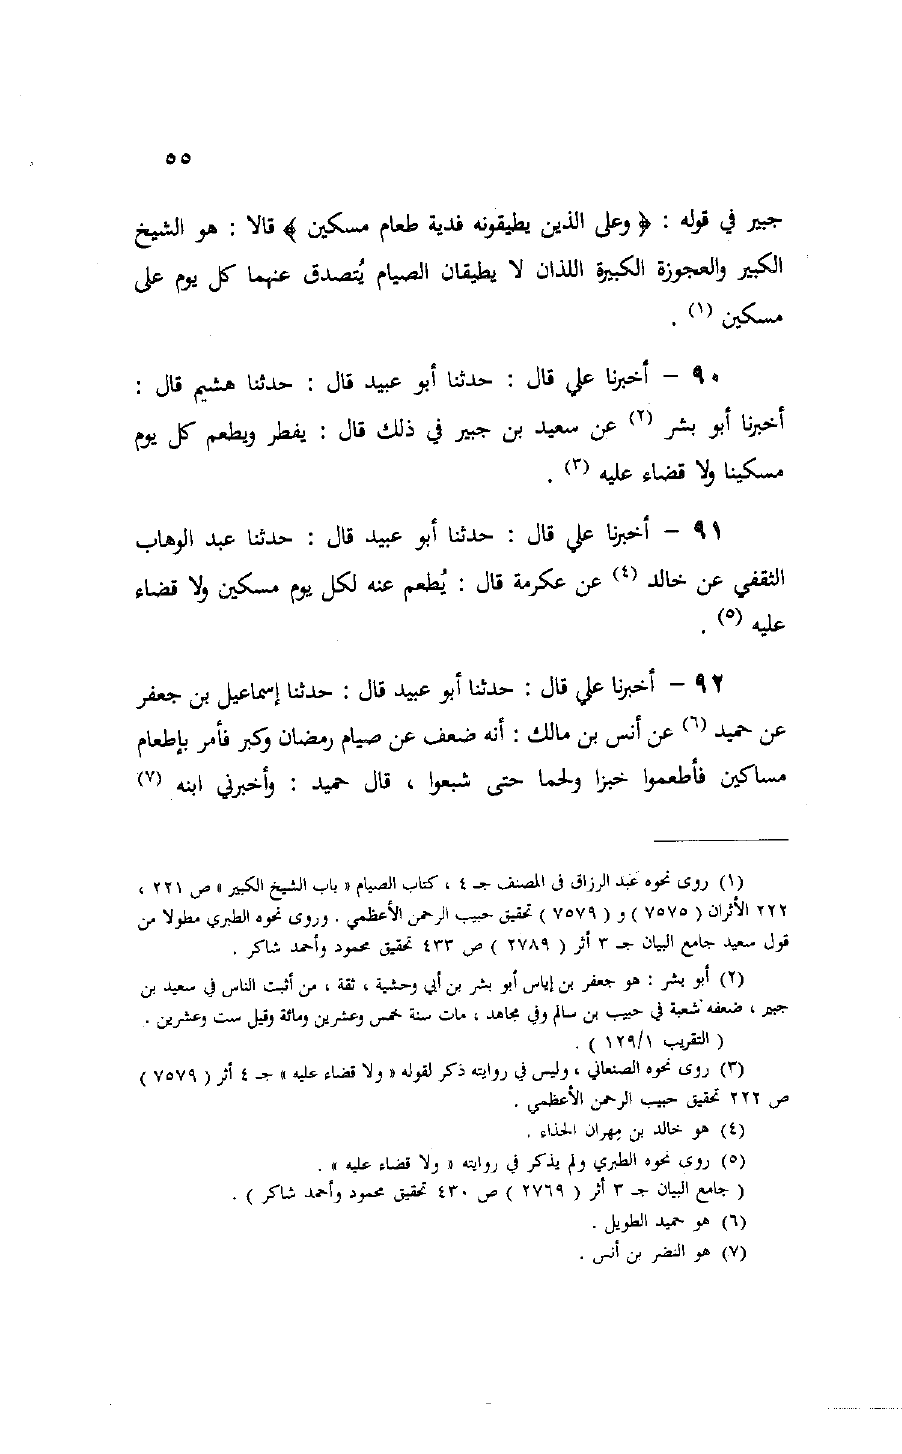 ٥٥
جبير في قوله : ﴿ وعلى الذين يطيقونه فدية طعام مسكين ﴾ قالا : هو الشيخ
الكبير والعجوزة الكبيرة اللذان لا يطيقان الصيام يُتصدق عنهما كل يوم على
مسكين (١) .
٩٠ – أخبرنا علي قال : حدثنا أبو عبيد قال : حدثنا هشيم قال :
أخبرنا أبو بشر (٢) عن سعيد بن جبير في ذلك قال : يفطر ويطعم كل يوم
مسكينا ولا قضاء عليه (٣) .
٩١ – أخبرنا علي قال : حدثنا أبو عبيد قال : حدثنا عبد الوهاب
الثقفي عن خالد (٤) عن عكرمة قال : يُطعم عنه لكل يوم مسكين ولا قضاء
عليه (٥) .
٩٢ – أخبرنا علي قال : حدثنا أبو عبيد قال : حدثنا إسماعيل بن جعفر
عن حميد (٦) عن أنس بن مالك : أنه ضعف عن صيام رمضان وكبر فأمر بإطعام
مساكين فأطعموا خبزا ولحما حتى شبعوا ، قال حميد : وأخبرني ابنه (٧)
(١) روى نحوه عبد الرزاق في المصنف جـ ٤ ، كتاب الصيام « باب الشيخ الكبير » ص ٢٢١ ،
٢٢٢ الأثران ( ٧٥٧٥ ) و ( ٧٥٧٩ ) تحقيق حبيب الرحمن الأعظمي . وروى نحوه الطبري مطولا من
قول سعيد جامع البيان جـ ٣ أثر ( ٢٧٨٩ ) ص ٤٣٣ تحقيق محمود وأحمد شاكر .
(٢) أبو بشر : هو جعفر بن إياس أبو بشر بن أبي وحشية ، ثقة ، من أثبت الناس في سعيد بن
جبير ، ضعفه شعبة في حبيب بن سالم وفي مجاهد ، مات سنة خمس وعشرين ومائة وقيل ست وعشرين .
( التقريب ١٢٩/١ ) .
(٣) روى نحوه الصنعاني ، وليس في روايته ذكر لقوله « ولا قضاء عليه » جـ ٤ أثر ( ٧٥٧٩ )
ص ٢٢٢ تحقيق حبيب الرحمن الأعظمي .
(٤) هو خالد بن مِهران الحذاء .
(٥) روى نحوه الطبري ولم يذكر في روايته « ولا قضاء عليه » .
( جامع البيان جـ ٣ أثر ( ٢٧٦٩ ) ص ٤٣٠ تحقيق محمود وأحمد شاكر ) .
(٦) هو حميد الطويل .
(٧) هو النضر بن أنس .